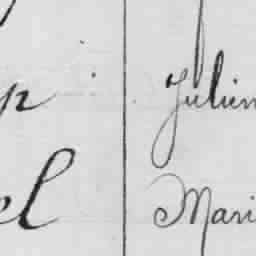 p Julien
el Mari